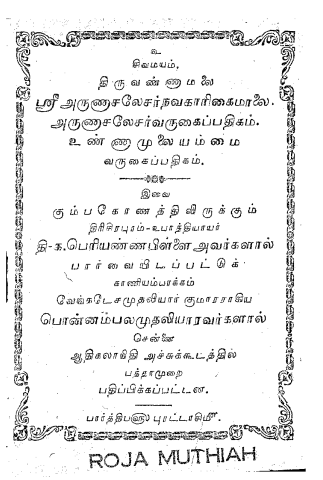 உ
சிவமயம்,
திருவண்ணாமலை
ஸ்ரீ அருணாசலேசர் நவகாரிகைமாலை.
அருணாசலேசர்வருகைப்பதிகம்.
உண்ணாமுலையம்மை
வருகைப்பதிகம்.
இவை
கும்பகோணத்திலிருக்கும்
திரிசிரபுரம்-உபாத்தியாயர்
தி-க.பெரியண்ணபிள்ளை அவர்களால்
பார்வையிடப்பட்டுக்
காணியம்பாக்கம்
வேங்கடேசமுதலியார் குமாரராகிய
பொன்னம்பலமுதலியாரவர்களால்
சென்னை
ஆதிகலாநிதி அச்சுக்கூடத்தில்
பத்தாமுறை
பதிப்பிக்கப்பட்டன.
பார்த்திபஞ௵ புரட்டாதி௴.
ROJA MUTHIAH